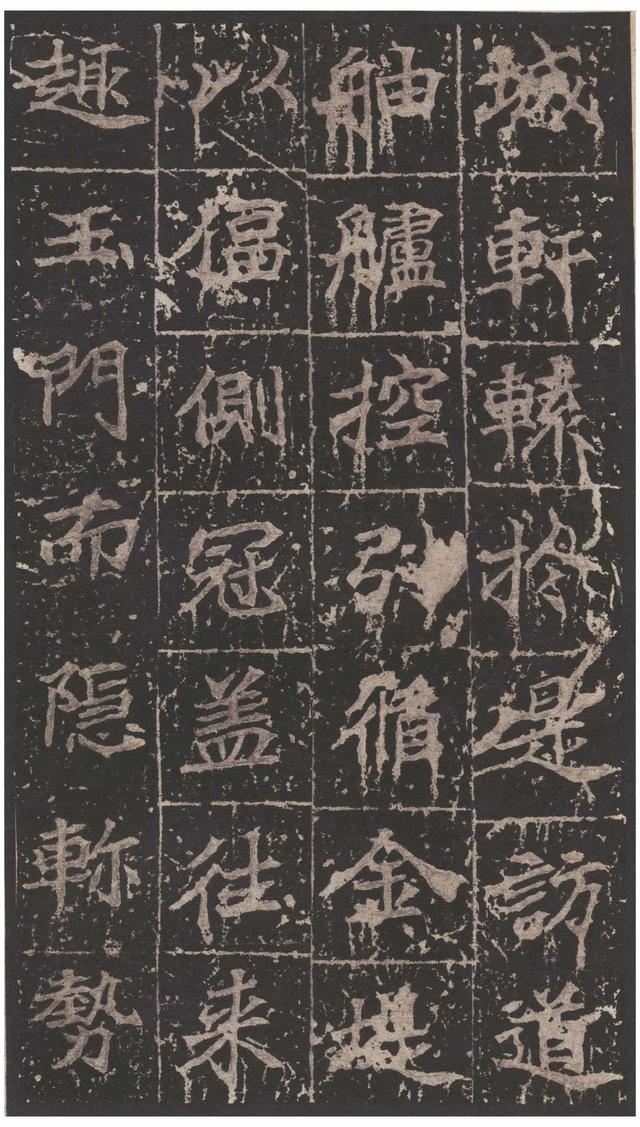 城軒轅扵是訪道
舳艫控引循金堤
以偪側冠盖往来
趣玉門而隐軫勢